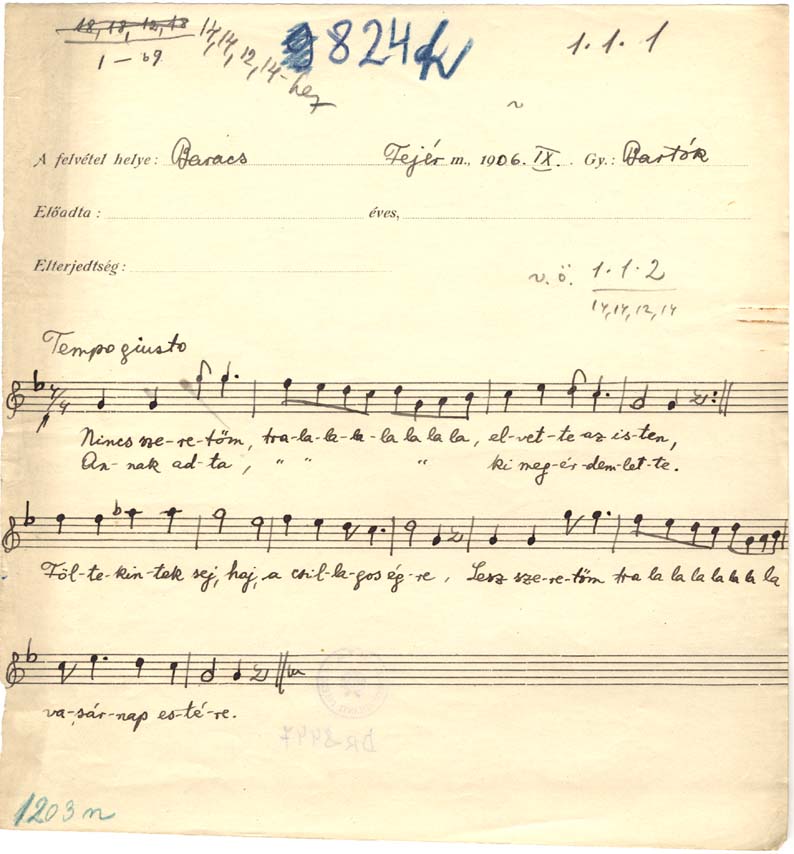 18, 18, 12, 18
1 – 69
14, 14, 12, 14-hez
824
1. 1. 1
A felvétel helye: Baracs Fejér m., 1906. IX. Gy.: Bartók
Előadta: éves,
Elterjedtség:
v. ö. 1. 1. 2
14, 14, 12, 14
Tempo giusto
4/4
Nincs sze-re-tőm, tra-la-la-la-la la la la, el-vet-te az is-ten,
An-nak ad-ta, " " " ki meg-ér-dem-let-te.
Föl-te-kin-tek sej, haj, a csil-la-gos ég-re, Lesz sze-re-tőm tra la la la la la la la
va-sár-nap es-té-re.
DR-8447
1203 n